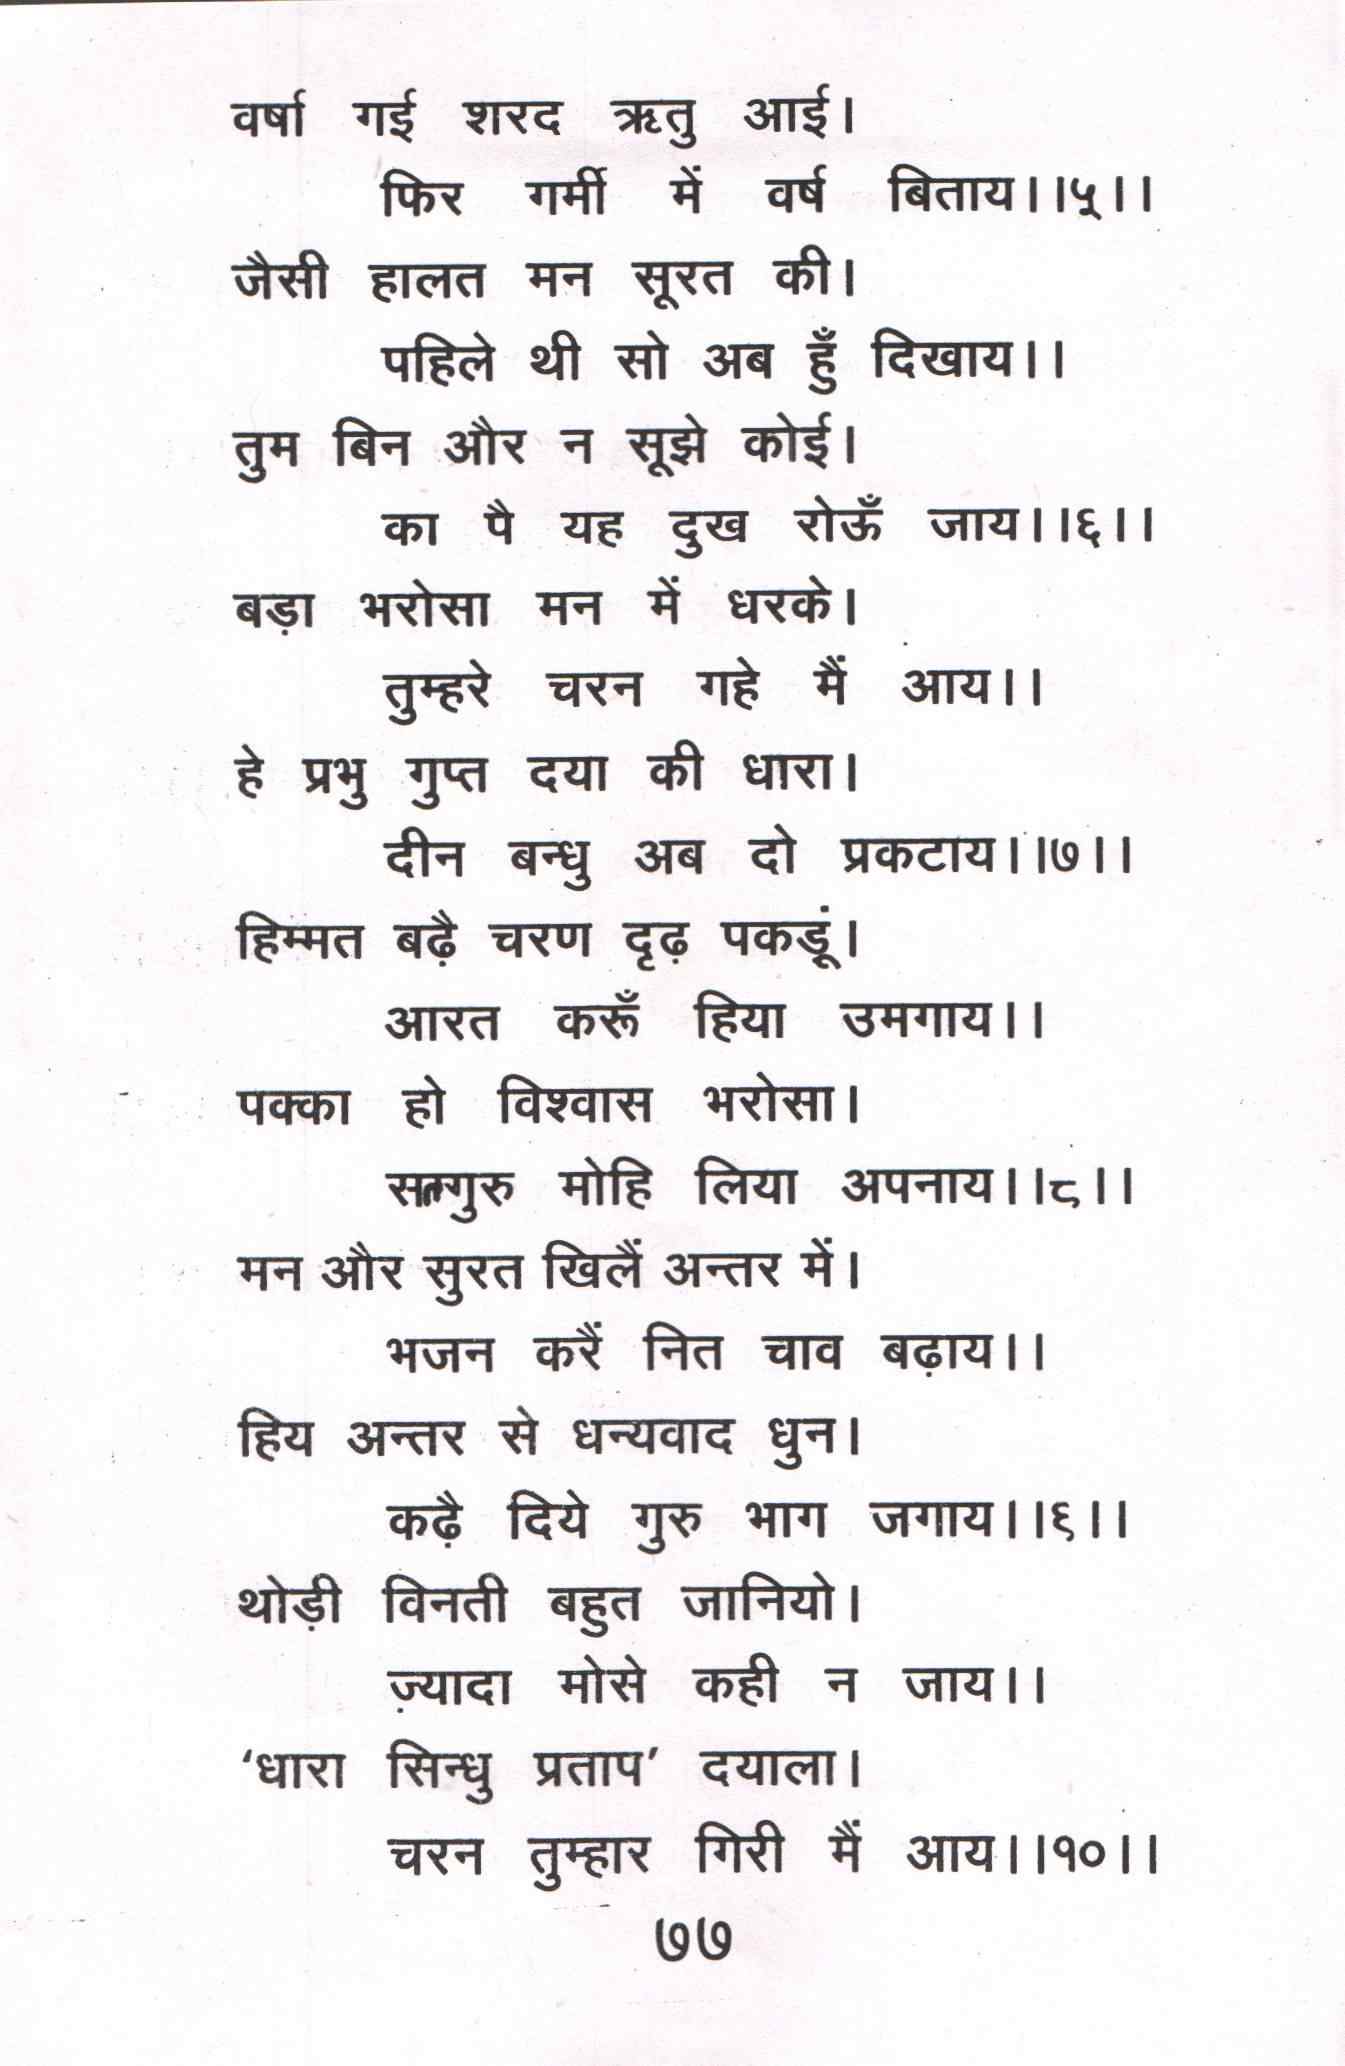 वर्षा गई शरद ऋतु आई।
फिर गर्मी में वर्ष बिताय।।५।।
जैसी हालत मन सूरत की।
पहिले थी सो अब हुँ दिखाय।।
तुम बिन और न सूझे कोई।
का पै यह दुख रोऊँ जाय।।६।।
बड़ा भरोसा मन में धरके।
तुम्हरे चरन गहे मैं आय।।
हे प्रभु गुप्त दया की धारा।
दीन बन्धु अब दो प्रकटाय।।७।।
हिम्मत बढ़ै चरण दृढ़ पकडूं।
आरत करूँ हिया उमगाय।।
पक्का हो विश्वास भरोसा।
मोहि लिया अपनाय।।८।।
मन और सुरत खिलैं अन्तर में।
भजन करैं नित चाव बढ़ाय।।
हिय अन्तर से धन्यवाद धुन।
कढ़ै दिये गुरु भाग जगाय।।९।।
थोड़ी विनती बहुत जानियो।
ज़्यादा मोसे कही न जाय।।
‘धारा सिन्धु प्रताप’ दयाला।
चरन तुम्हार गिरी मैं आय।।१०।।
७७